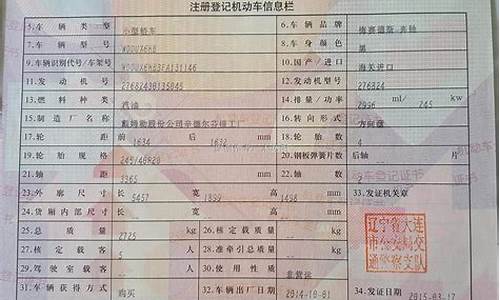 注册登记机动车信息栏
5.车辆类型 小型轿车 6.车辆品牌 梅赛德斯-奔驰
7.车辆型号 8.车身颜色 黑
9.车辆识别代号/车架号 10.国产/进口 海关进口
11.发动机号 12.发动机型号 276824
13.燃料种类 汽油 14.排量/功率 2996 ml/ 245 kw
15.制造厂名称 戴姆勒股份公司辛德尔芬根工厂 16.转向形式 方向盘
17.轮距 前 1634 后 1632 mm 18.轮胎数 4
19.轮胎规格 245/46R20 20.钢板弹簧片数 后轴 片
21.轴距 3365 mm 22.轴数 2
23.外廓尺寸 长 5457 宽 1899 高 1498 mm 33.发证机关章
24.货厢内部尺寸 长 宽 高 mm
25.总质量 2725 kg 26.核定载质量 kg
27.核定载客 5 人 28.准牵引总质量 kg
29.驾驶室载客 人 30.使用性质 非营运
31.车辆获得方式 购买 32.车辆出厂日期 2014-10-01 34.发证日期 2015-03-17
辽宁省大连
市公安局交
通警察支队
机动车登记证书